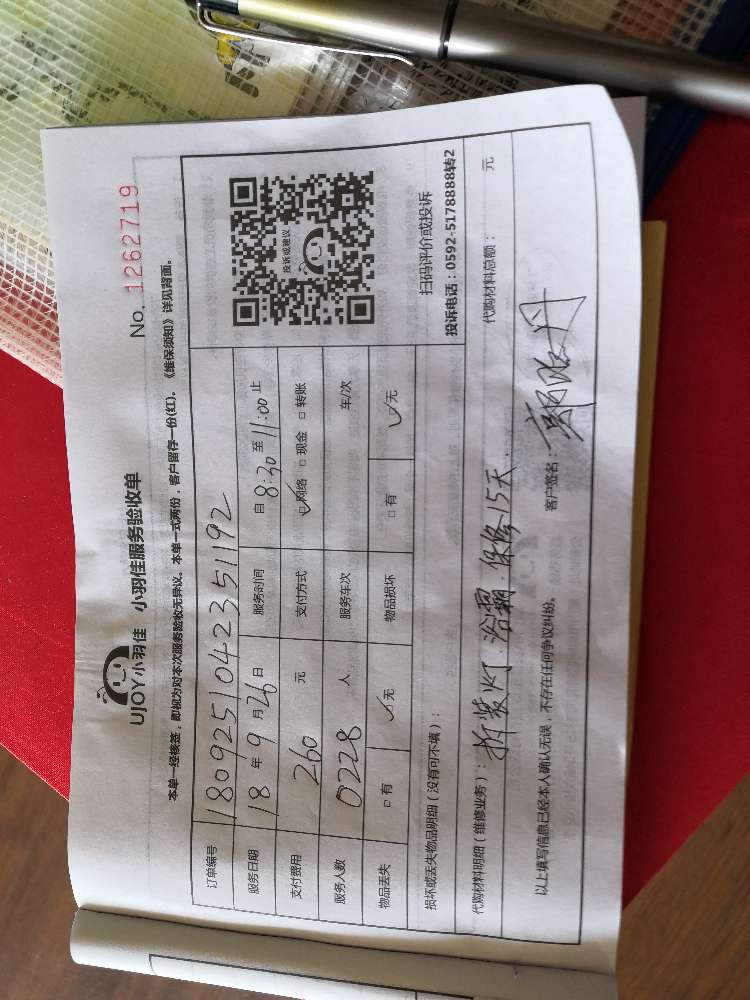 UJOY小羽佳 小羽佳服务验收单
No. 1262719
本单一经核签，即视为对本次服务验收无异议。本单一式两份，客户留存一份(红)。《维保须知》详见背面。
订单编号 1809251042351192
服务日期 18 年 9 月 26 日 服务时间 自 8:30 至 11:00 止
支付费用 260 元 支付方式 ☑网络 □现金 □转账
服务人数 0228 人 服务车次 车/次
物品丢失 □有 ☑无 物品损坏 □有 ☑无
投诉或建议
扫码评价或投诉
投诉电话：0592-5178888转2
损坏或丢失物品明细（没有可不填）：
代购材料明细（维修业务）：拆装灯.浴霸.保修15天.
代购材料总额： 元
以上填写信息已经本人确认无误，不存在任何争议纠纷。
客户签名：